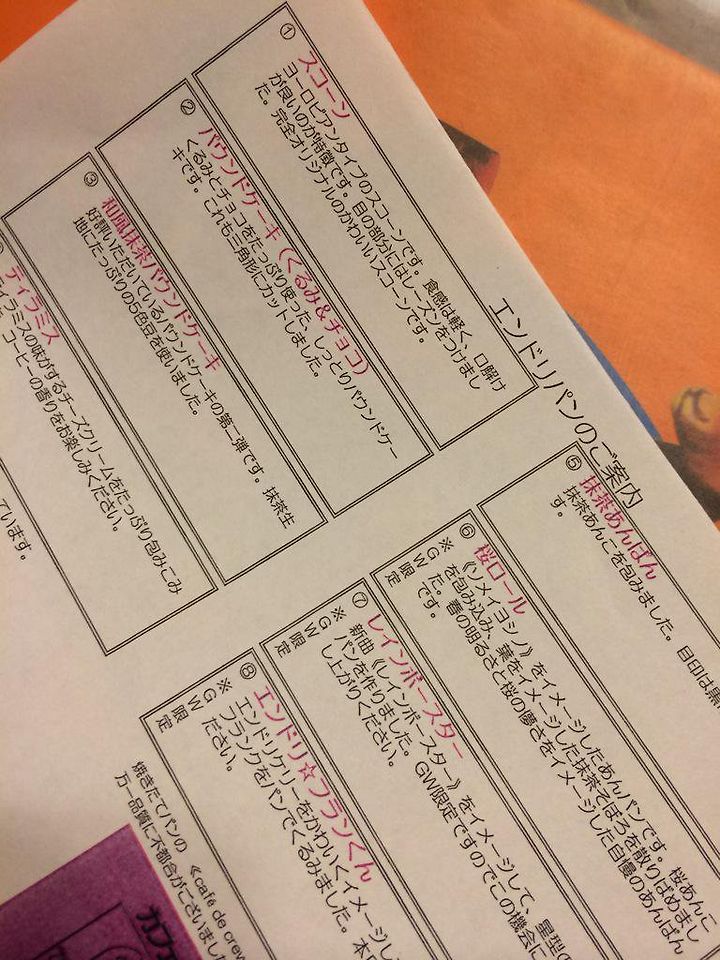 エンドリパンのご案内
①
スコーン
ヨーロピアンタイプのスコーンです。食感は軽く、口解け
が良いのが特徴です。目の部分にはレーズンをつけまし
た。完全オリジナルのかわいいスコーンです。
②
パウンドケーキ(くるみ&チョコ)
くるみとチョコをたっぷり使った、しっとりパウンドケー
キです。これも三角形にカットしました。
③
和風抹茶パウンドケーキ
好評いただいているパウンドケーキの第二弾です。抹茶生
地にたっぷりの5色豆を使いました。
ティラミス
ミスの味がするチーズクリームをたっぷり包みこみ
コーヒーの香りをお楽しみください。
ています。
⑤
抹茶あんぱん
抹茶あんこを包みました。目印は黒
す。
⑥
※GW限定
桜ロール
《ソメイヨシノ》をイメージしたあんパンです。桜あんこ
を包み込み、葉をイメージした抹茶そぼろを散りばめまし
た。春の明るさと桜の儚さをイメージした自慢のあんぱん
です。
⑦
※GW限定
レインボースター
新曲《レインボースター》をイメージして、星型の
パンを作りました。GW限定ですのでこの機会に
し上がりください。
⑧
※GW限定
エンドリ☆フランくん
エンドリケリーをかわいくイメージし
フランクをパンでくるみました。本
ください。
焼きたてパンの 《café de crew
万一品質に不都合がございまし
カフェ